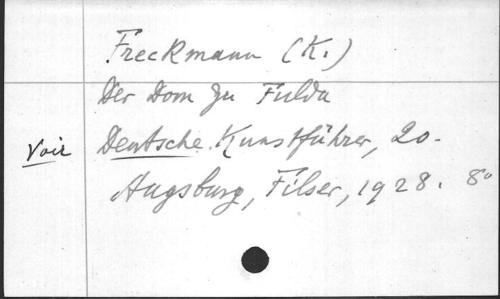 Freckmann (K.)
Der Dom zu Fulda
Voir Deutsche Kunstführer, 20.
Augsburg, Filser, 1928. 8°